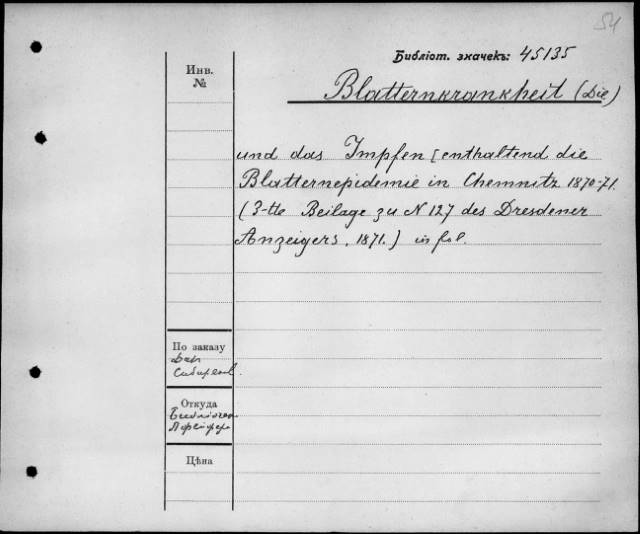 54
Библіот. значекъ: 45135
Инв.
№
Blatternkrankheit (Die)
und das Impfen [enthaltend die
Blatternepidemie in Chemnitz 1870-71.
(3-tte Beilage zu N 127 des Dresdener
Anzeigers, 1871.) in fol.
По заказу
Дар
Откуда
Библіотека
Цѣна